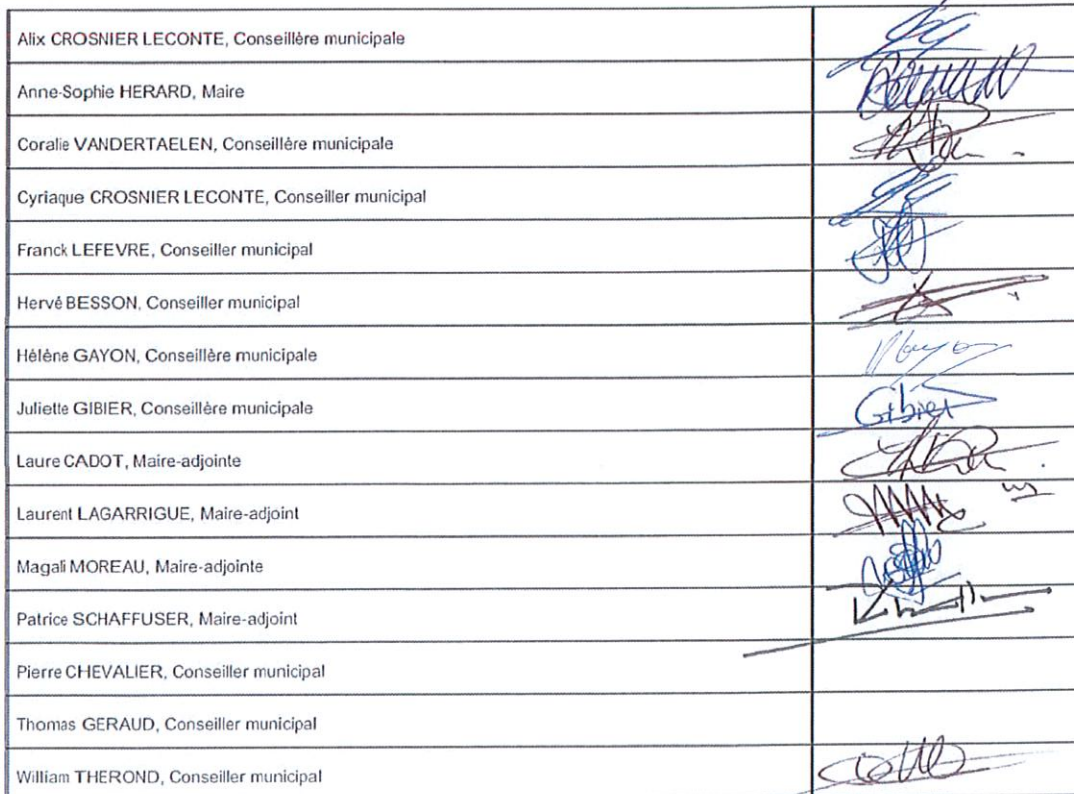 Alix CROSNIER LECONTE, Conseillère municipale
Anne-Sophie HERARD, Maire
Coralie VANDERTAELEN, Conseillère municipale
Cyriaque CROSNIER LECONTE, Conseiller municipal
Franck LEFEVRE, Conseiller municipal
Hervé BESSON, Conseiller municipal
Hélène GAYON, Conseillère municipale
Juliette GIBIER, Conseillère municipale Gibier
Laure CADOT, Maire-adjointe
Laurent LAGARRIGUE, Maire-adjoint
Magali MOREAU, Maire-adjointe
Patrice SCHAFFUSER, Maire-adjoint
Pierre CHEVALIER, Conseiller municipal
Thomas GERAUD, Conseiller municipal
William THEROND, Conseiller municipal